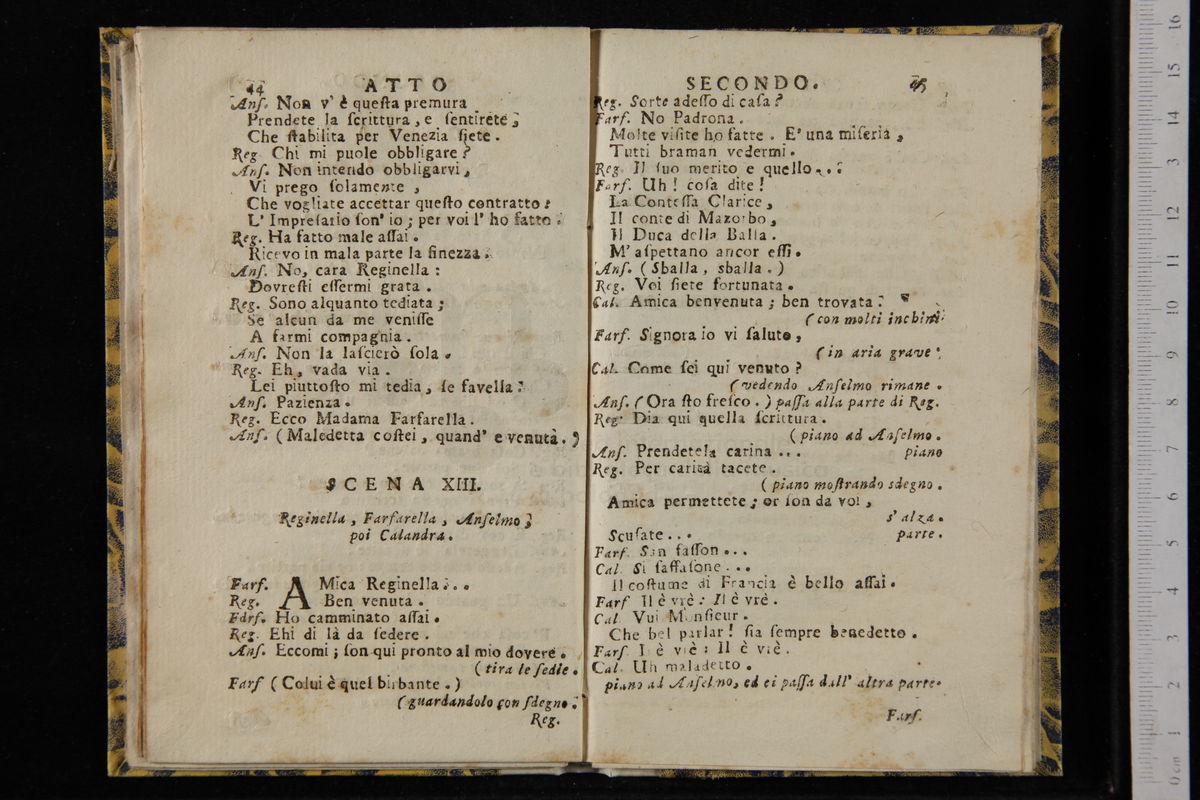 44 ATTO
Anſ. Non v' è queſta premura
Prendete la ſcrittura, e ſentirete;
Che ſtabilita per Venezia ſiete.
Reg. Chi mi puole obbligare?
Anſ. Non intendo obbligarvi,
Vi prego ſolamente,
Che vogliate accettar queſto contratto:
L' Impreſario ſon' io; per voi l' ho fatto.
Reg. Ha fatto male aſſai.
Ricevo in mala parte la finezza.
Anſ. No, cara Reginella:
Dovreſti eſſermi grata.
Reg. Sono alquanto tediata;
Se alcun da me veniſſe
A farmi compagnia.
Anſ. Non la laſcierò ſola.
Reg. Eh, vada via.
Lei piuttoſto mi tedia, ſe favella:
Anſ. Pazienza.
Reg. Ecco Madama Farfarella.
Anſ. (Maledetta coſtei, quand' e venuta.)
SCENA XIII.
Reginella, Farfarella, Anſelmo;
poi Calandra.
Farſ. AMica Reginella...
Reg. Ben venuta.
Farſ. Ho camminato aſſai.
Reg. Ehi di là da ſedere.
Anſ. Eccomi; ſon qui pronto al mio dovere.
(tira le ſedie.
Farſ (Colui è quel birbante.)
(guardandolo con ſdegno.
Reg.
SECONDO. 45
Reg. Sorte adeſſo di caſa?
Farſ. No Padrona.
Molte viſite ho fatte. E' una miſeria,
Tutti braman vedermi.
Reg. Il ſuo merito e quello...
Farſ. Uh! coſa dite!
La Conteſſa Clarice,
Il conte di Mazorbo,
Il Duca della Balla.
M' aſpettano ancor eſſi.
Anſ. (Sballa, sballa.)
Reg. Voi ſiete fortunata.
Cal. Amica benvenuta; ben trovata:
(con molti inchini.
Farſ. Signora io vi ſaluto,
(in aria grave.
Cal. Come ſei qui venuto?
(vedendo Anſelmo rimane.
Anſ. (Ora ſto freſco.) paſſa alla parte di Reg.
Reg. Dia qui quella ſcrittura.
(piano ad Anſelmo.
Anſ. Prendetela carina... piano
Reg. Per carità tacete.
(piano moſtrando sdegno.
Amica permettete; or ſon da voi,
s' alza.
Scuſate... parte.
Farſ. San faſſon...
Cal. Si faſſaſone...
Il coſtume di Francia è bello aſſai.
Farſ Il è vrè: Il è vrè.
Cal. Vui Monſieur.
Che bel parlar! ſia ſempre benedetto.
Farſ I è vrè: Il è vrè.
Cal. Uh maladetto.
piano ad Anſelmo, ed ei paſſa dall' altra parte.
Farſ.